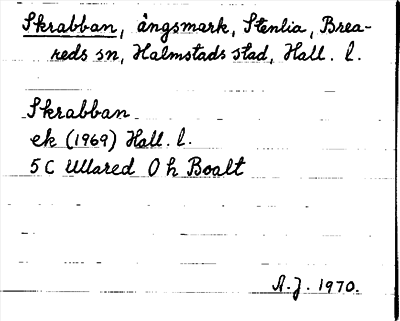 Skrabban, ängsmark, Stenlia, Brea-
reds sn, Halmstads stad, Hall. l.
Skrabban
ek (1969) Hall. l.
5 C Ullared 0 h Boalt
A.J. 1970.